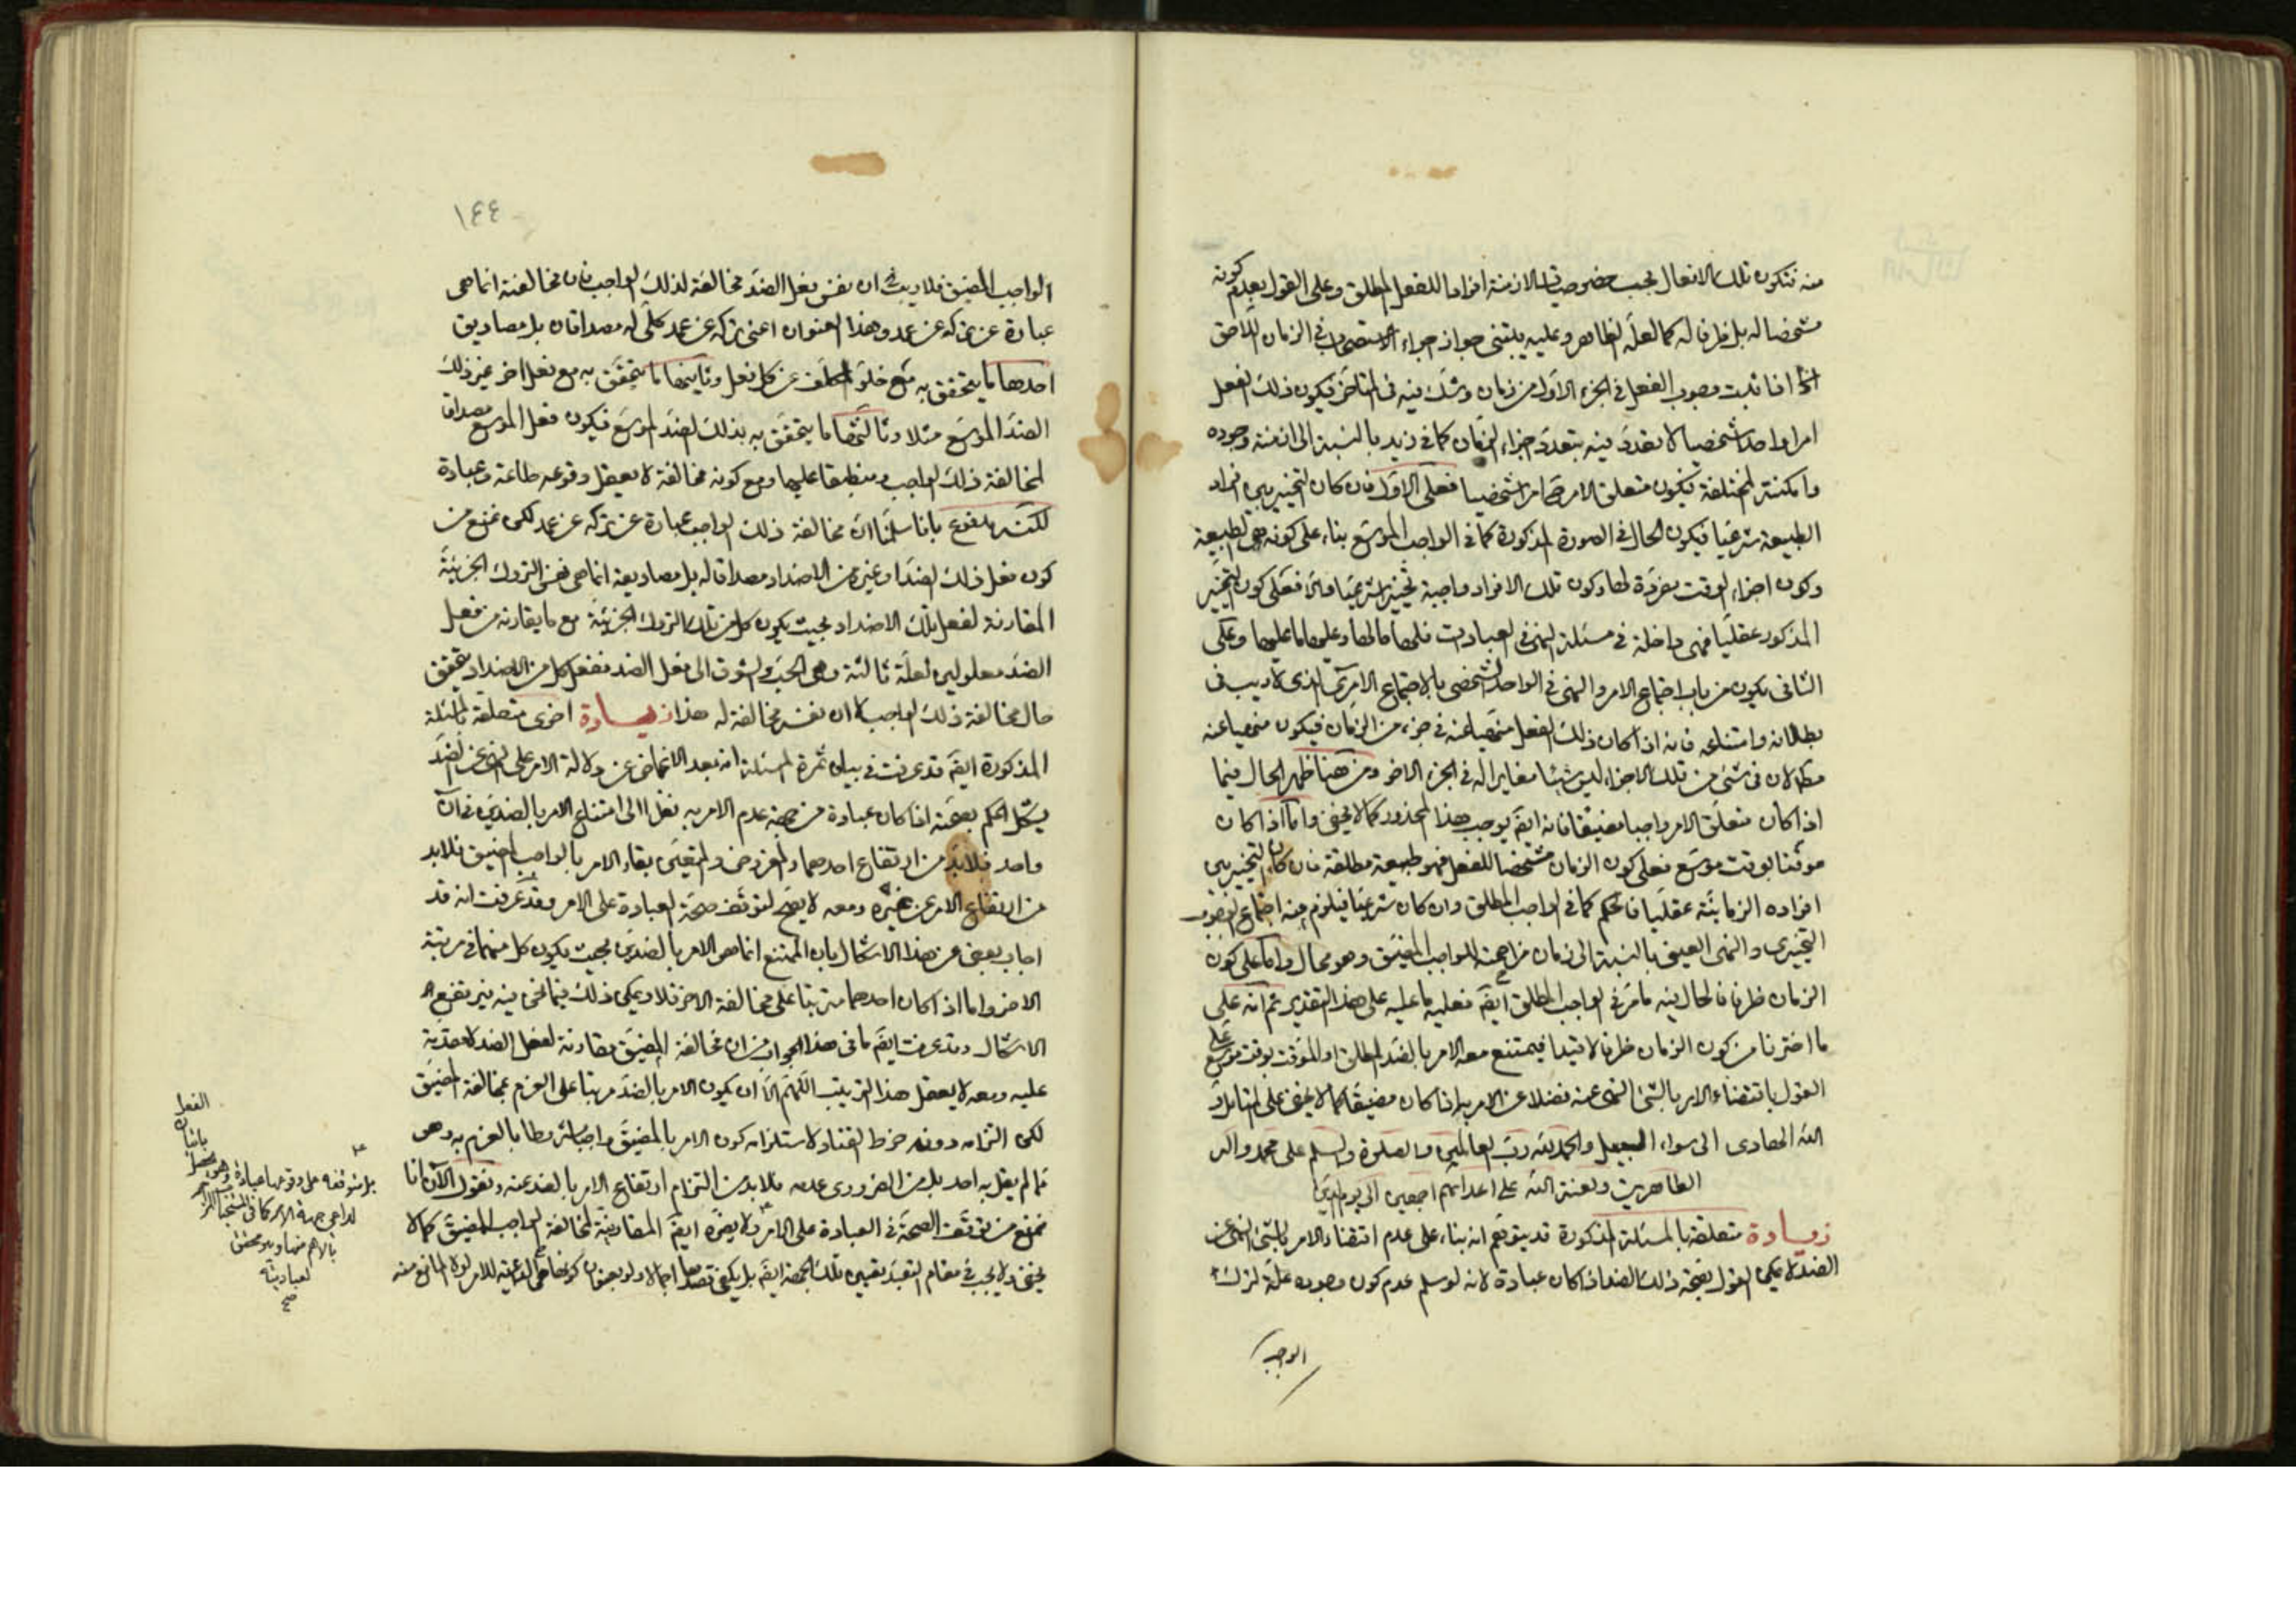 منه فتكون تلك الافعال بحسب خصوصيات الازمنة افرادا للفعل المطلق وعلى القول بعدم كونه
مشخصا له بل ظرفا له كما لعله الظاهر وعليه يبتنى جواز اجراء الاستصحاب فى الزمان اللاحق
اذا ثبت وجوب الفعل فى الجزء الاول من زمان وشك فيه فى المتاخر فيكون ذلك الفعل
امرا واحدا شخصيا لا تعدد فيه بتعدد اجزاء الزمان كما فى زيد بالنسبة الى ازمنة وجوده
وامكنته المختلفة فيكون متعلق الامر امرا شخصيا فعلى الاول فان كان التخيير بين افراد
الطبيعة شرعيا فيكون الحال فى الصورة المذكورة كما فى الواجب الموسع بناء على كونه هى الطبيعة
وكون اجزاء الوقت مفردة لها وكون تلك الافراد واجبة تخييرا شرعيا والا فعلى كون التخيير
المذكور عقليا فهى داخلة فى مسئلة النهى فى العبادات فلها ما لها وعليها ما عليها وعلى
الثانى يكون من باب اجتماع الامر والنهى فى الواحد الشخصى بالاجتماع الامرى الذى لا ريب فى
بطلانه وامتناعه فانه اذا كان ذلك الفعل منهيا عنه فى جزء من الزمان فيكون منهيا عنه
مط لان فى شئ من تلك الاجزاء ليس شيئا مغايرا له فى الجزء الاخر ومن هنا ظهر الحال فيما
اذا كان متعلق الامر واجبا مضيقا فانه ايضا يوجب هذا المحذور كما لا يخفى واما اذا كان
موقتا بوقت موسع فعلى كون الزمان مشخصا للفعل فهو طبيعة مطلقة فان كان التخيير بين
افراده الزمانية عقليا فالحكم كما فى الواجب المطلق وان كان شرعيا فيلزم منه اجتماع الوجوب
التخييرى والنهى العينى بالنسبة الى زمان مزاحمته للواجب المضيق وهو محال واما على كون
الزمان ظرفا فالحال فيه ما مر فى الواجب المطلق ايضا فعليه ما عليه على هذا التقدير ثم انه على
ما اخترنا من كون الزمان ظرفا لا قيدا فيمتنع معه الامر بالضد المطلق او الموقت بوقت موسع على
القول باقتضاء الامر بالشئ النهى عنه فضلا عن الامر به اذا كان مضيقا كما لا يخفى على المتامل و
الله الهادى الى سواء السبيل والحمد لله رب العالمين والصلوة والسلم على محمد واله
الطاهرين ولعنة الله على اعدائهم اجمعين الى يوم الدين
زيادة متعلقة بالمسئلة المذكورة قد يتوهم انه بناء على عدم اقتضاء الامر بالشئ النهى عن
الضد لا يمكن القول بصحة ذلك الضد اذا كان عبادة لانه لو سلم عدم كون وجوده علة لترك
الواجب
١٤٤
الواجب المضيق فلا ريب ان نفس فعل الضد مخالفة لذلك الواجب فان مخالفته انما هى
عبارة عن تركه عن عمد وهذا العنوان اعنى تركه عن عمد كلى له مصداقان بل مصاديق
احدها ما يتحقق به مع خلو المكلف عن كل فعل وثانيها ما يتحقق به مع فعل اخر غير ذلك
الضد الموسع مثلا وثالثها ما يتحقق به بذلك الضد الموسع فيكون فعل الموسع مصداقا
لمخالفة ذلك الواجب ومنطبقا عليها ومع كونه مخالفة لا يعقل وقوعه طاعة وعبادة
لكنه مدفوع بانا سلمنا ان مخالفة ذلك الواجب عبارة عن تركه عن عمد لكن نمنع من
كون فعل ذلك الضد او غيره من الاضداد مصداقا له بل مصاديقه انما هى نفس التروك الجزئية
المقارنة لفعل تلك الاضداد بحيث يكون كل من تلك التروك الجزئية مع ما يقارنه من فعل
الضد معلولين لعلة ثالثة وهى الحب والشوق الى فعل الضد ففعل كل من الاضداد يتحقق
حال مخالفة ذلك الواجب لا ان نفسه مخالفة له هذا زيادة اخرى متعلقة بالمسئلة
المذكورة ايضا قد عرفت فى بيان ثمرة المسئلة انه بعد الاغماض عن دلالة الامر على النهى عن الضد
يشكل الحكم بصحته اذا كان عبادة من جهة عدم الامر به نظرا الى امتناع الامر بالضدين فى آن
واحد فلابد من ارتفاع احدهما والمفروض والمتعين بقاء الامر بالواجب المضيق فلابد
من ارتفاع الامر عن غيره ومعه لا يصح لتوقف صحة العبادة على الامر وقد عرفت انه قد
اجاب بعض عن هذا الاشكال بان الممتنع انما هو الامر بالضدين بحيث يكون كل منهما فى مرتبة
الاخر واما اذا كان احدهما مرتبا على مخالفة الاخر فلا ويمكن ذلك فيما نحن فيه فيرتفع
الاشكال وقد عرفت ايضا ما فى هذا الجواب من ان مخالفة المضيق مقارنة لفعل الضد لا مقدمة
عليه ومعه لا يعقل هذا الترتيب اللهم الا ان يكون الامر بالضد مرتبا على العزم بمخالفة المضيق
لكن التزامه دونه خرط القتاد لاستلزامه كون الامر بالمضيق واجبا مشروطا بالعزم به وهو
مما لم يقل به احد بل من الضرورى عدمه فلابد من التزام ارتفاع الامر بالضد عنه ونقول الآن انا
نمنع من توقف الصحة فى العبادة على الامر ولا يضره ايضا المقارنة لمخالفة الواجب المضيق كما لا
يخفى ولا يجب فى مقام التعبد تعيين تلك الجهة ايضا بل يكفى قصدها اجمالا ولو بعنوان كونها هى الداعية للامر لولا المانع منه
بل يتوقف على وقوعها عبادة وهو يحصل
باتيان
الفعل
لداعى جهة الامر كما فى
بالاهم منها
لعباديته
صح